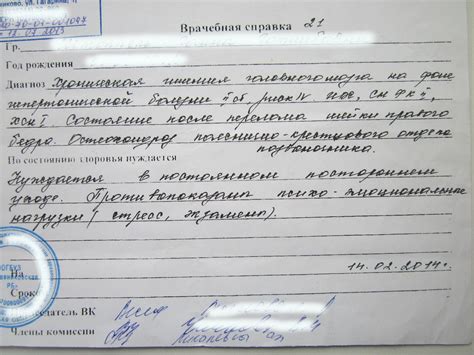 ул. Гагарина,
12.07.2013
Врачебная справка 21
Гр.
Год рождения
Диагноз Хроническая ишемия головного мозга на фоне
гипертонической болезни II ст, риск IV ИБС, сн ФК II,
ХСН I. Состояние после перелома шейки правого
бедра. Остеохондроз пояснично-крестцового отдела
позвоночника.
По состоянию здоровья нуждается
Нуждается в постоянном постороннем
уходе. Противопоказаны психо-эмоциональные
нагрузки (стресс, экзамены).
На 14.02.2014г.
Срок
седатель ВК
Члены комиссии